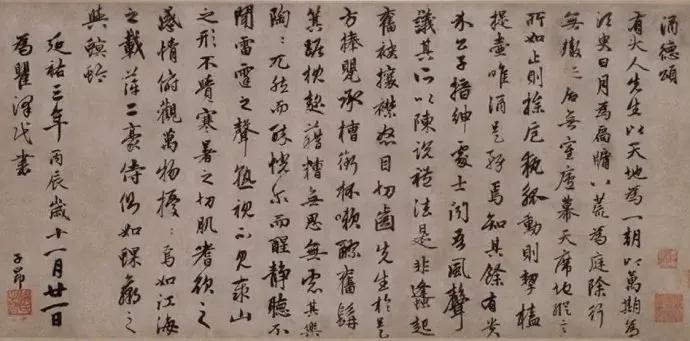 酒德頌
有大人先生以天地為一朝以萬期為
須臾日月為扃牖八荒為庭除行
無轍跡居無室廬幕天席地縱意
所如止則操卮執觚動則挈榼
提壺唯酒是務焉知其餘有貴
介公子搢紳處士聞吾風聲
議其所以陳說禮法是非蠭起
奮袂攘襟怒目切齒先生於是
方捧甖承槽銜杯漱醪奮髯
箕踞枕麴藉糟無思無慮其樂
陶〻兀然而醉恍爾而醒靜聽不
聞雷霆之聲熟視不見泰山
之形不覺寒暑之切肌嗜欲之
感情俯觀萬物擾〻焉如江海
之載萍二豪侍側如蜾蠃之
與螟蛉
延祐三年丙辰歲十一月廿一日
為瞿澤民書
子昂